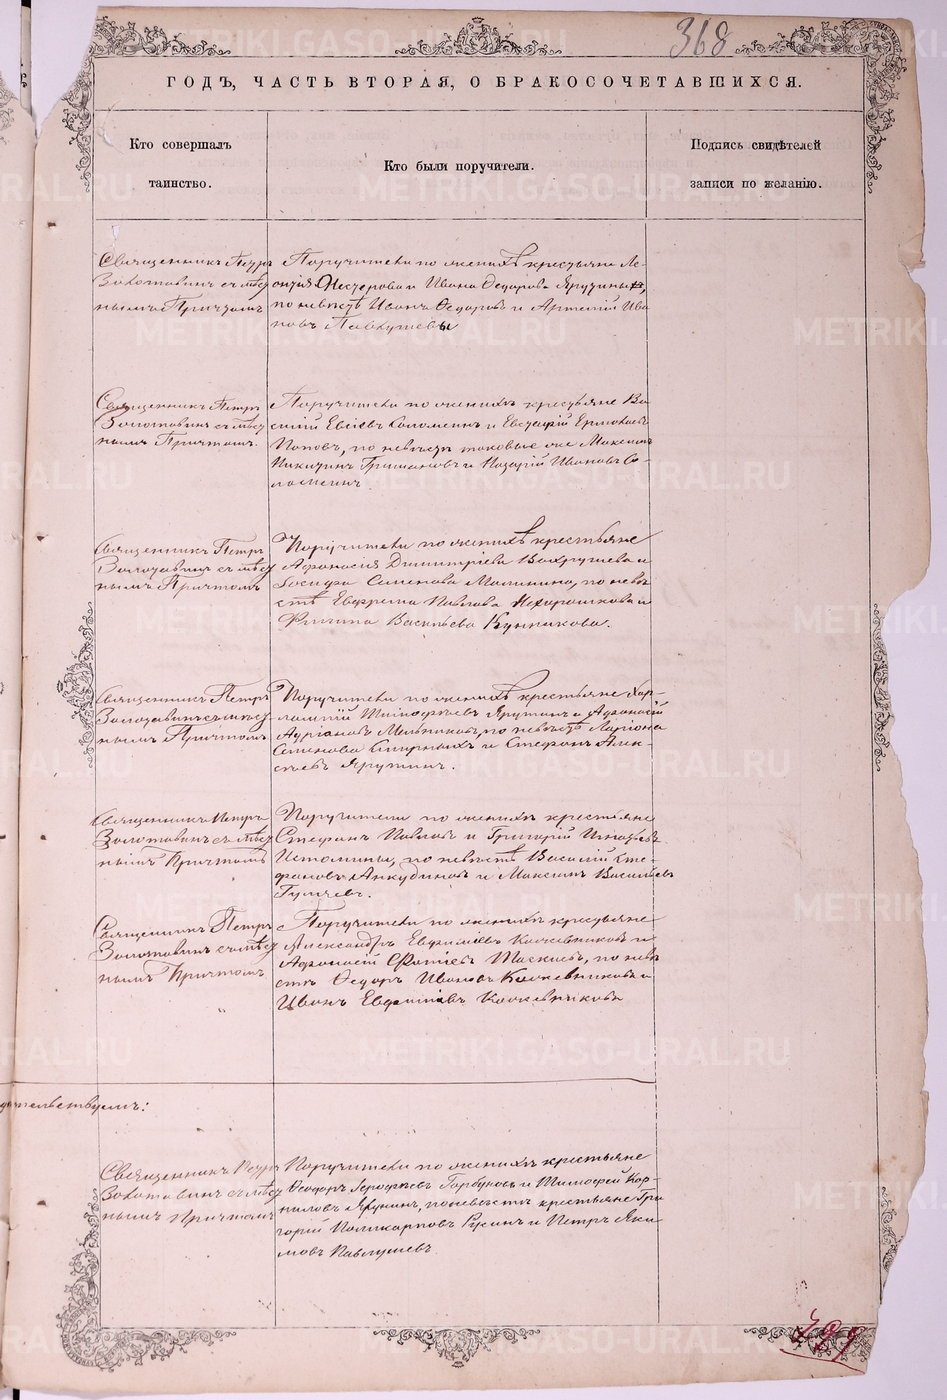 368
ГОДЪ, ЧАСТЬ ВТОРАЯ, О БРАКОСОЧЕТАВШИХСЯ.
Кто совершалъ
таинство.
Кто были поручители.
Подпись свидѣтелей
записи по желанію.
Священникъ Петръ
Золотавинъ съ мѣст
нымъ Причтомъ
Поручители по женихѣ крестьяне Ле-
онтія Нестерова и Ивана Ѳедорова Ярутины,
по невѣстѣ Иванъ Ѳедоровъ и Артемій Ива
новъ Павлушевы
Священникъ Петръ
Золотавинъ съ мѣст
нымъ Причтомъ.
Поручители по женихѣ крестьяне Ва
силій Соломеинъ и Евстафій Ермолаевъ
Поповъ, по невѣстѣ таковые же Максимъ
Никитинъ и Назарій Ивановъ Со-
ломеинъ
Священникъ Петръ
Золотавинъ съ мѣст
нымъ Причтомъ
Поручители по женихѣ крестьяне
Афанасія Димитріева Вахрушева и
Іосифа Семенова Малинина, по невѣ
стѣ Ефрема Павлова и
Филиппа Васильева Кунникова.
Священникъ Петръ
Золотавинъ съ мѣст
нымъ Причтомъ
Поручители по женихѣ крестьяне Хар-
лампій Тимофѣевъ Ярутинъ и Афанасій
Мельниковъ, по невѣстѣ Ларіона
Семенова Смирныхъ и Стефанъ Алек-
сѣевъ Ярутинъ.
Священникъ Петръ
Золотавинъ съ мѣст
нымъ Причтомъ
Поручители по женихѣ крестьяне
Стефанъ Павловъ и Григорій Игнатьевъ
Истомины, по невѣстѣ Василій Сте-
фановъ Анкудиновъ и Максимъ Васильевъ
Гуляевъ.
Священникъ Петръ
Золотавинъ съ мѣст
нымъ Причтомъ
Поручители по женихѣ крестьяне
Александръ Евфиміевъ Кожевниковъ и
Афанасій Фотіевъ по невѣ
стѣ Ѳедоръ Ивановъ Кожевниковъ и
Иванъ Евфиміевъ Кожевниковъ
Священникъ Петръ
Золотавинъ съ мѣст
нымъ Причтомъ
Поручители по женихѣ крестьяне
Ѳеодоръ Горбуновъ и Тимофей Кор-
ниловъ Ярутинъ, по невѣстѣ крестьяне Гри
горій Поликарповъ Русинъ и Петръ Яки
мовъ Павлушевъ.
METRIKI.GASO-URAL.RU